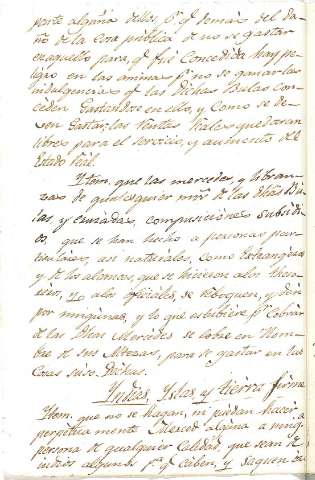 parte alguna dellos, p.r q.e demas del da-
ño de la cosa publica de no se gastar
en aquello para q.e fue concedida hay pe-
ligro en las animas p.r no se ganar las
indulgencias q.e las dichas Bulas con-
ceden gastandose en ello, y como se de-
ven gastar; las rentas reales quedaran
libres para el servicio, y aumento del
Estado Real.
Ytem, que las mercedes, y libran-
zas de qualesquier mrs de las dhas Bu-
las y cruzadas, composiciones subsidi-
os, que se han hecho a personas par-
ticulares, asi naturales, como extrangeros
y de los alcances, que se hicieron a los theso-
reros, o a los oficiales, se reboquen, y den
por ningunas, y lo que estubiere p.r cobrar
de las dhas Mercedes se cobre en Nom-
bre de sus Altezas, para se gastar en las
cosas suso Dichas.
Indias, Yslas y tierra firme
Ytem, que no se hagan, ni puedan hacer
perpetuamente merced alguna a ning.a
persona de qualquier calidad, que sean de
indios algunos p.a q.e caben, y saquen